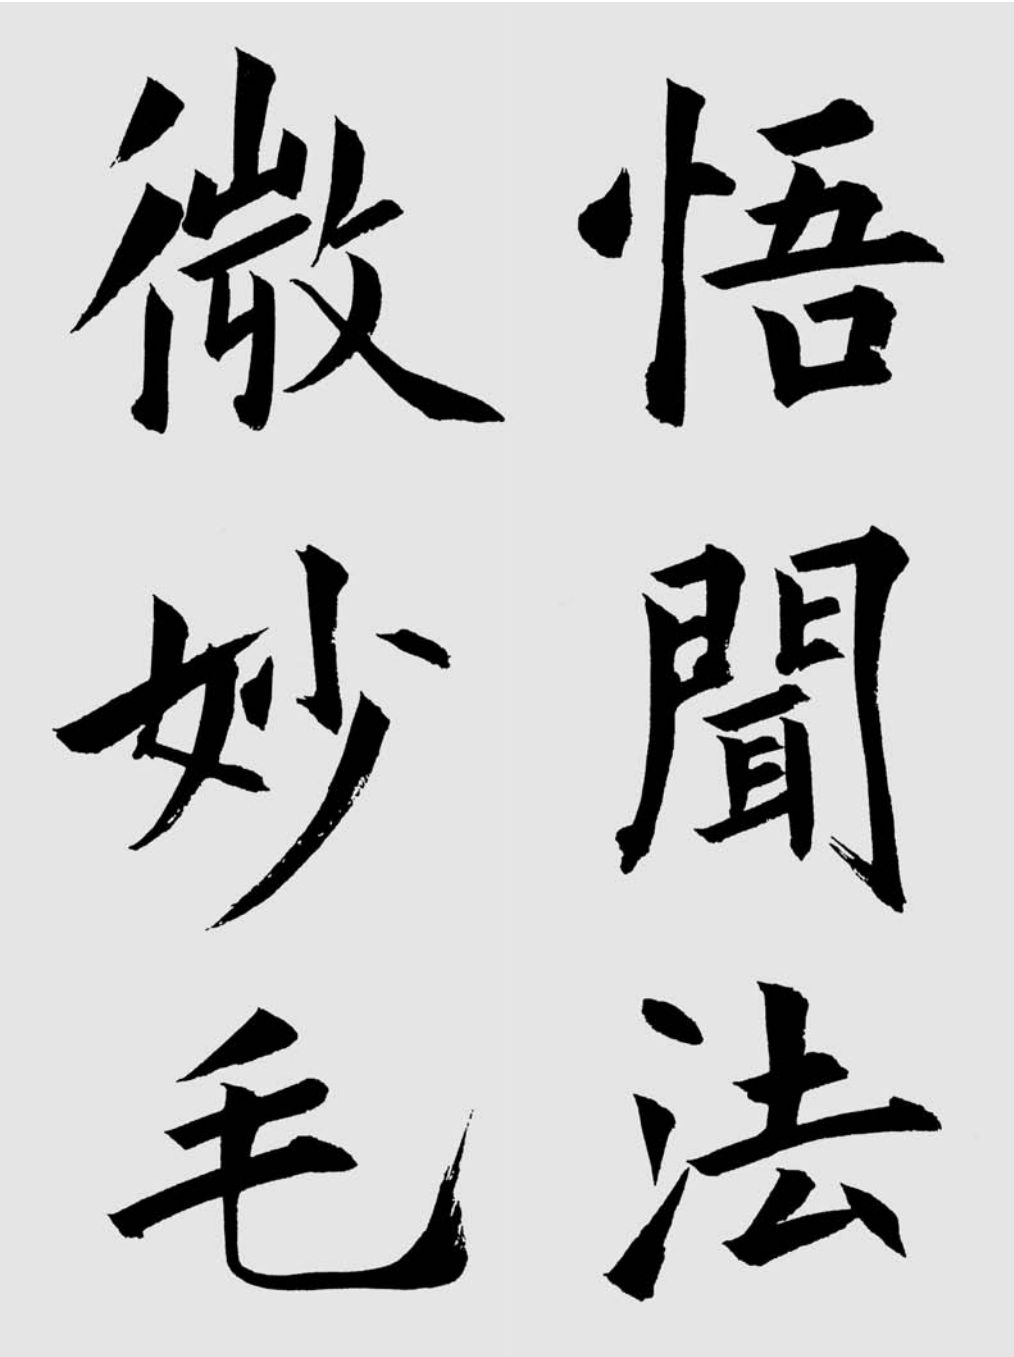 悟聞法
微妙毛